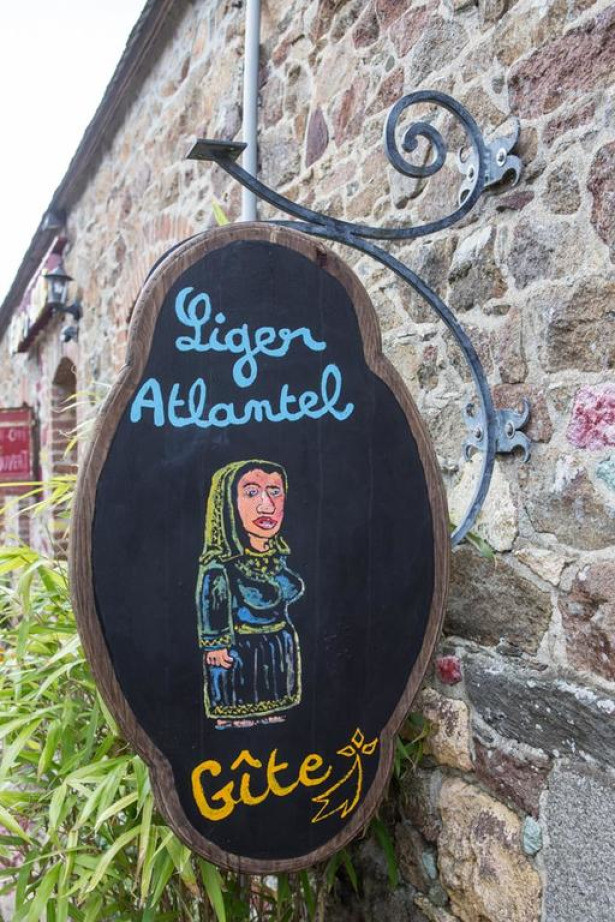 Liger
Atlantel
Gîte